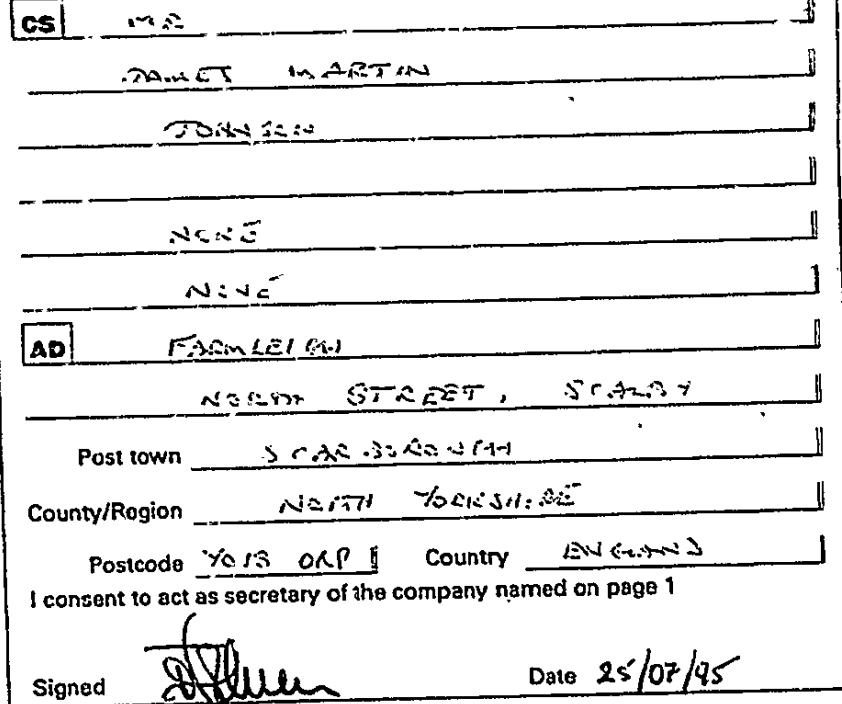 CS MR
JAMES MARTIN
JOHNSON
NONE
NONE
AD FARMLEIGH
NORTH STREET, SCALBY
Post town SCARBOROUGH
County/Region NORTH YORKSHIRE
Postcode YO13 0RP Country ENGLAND
I consent to act as secretary of the company named on page 1
Signed Date 25/07/95